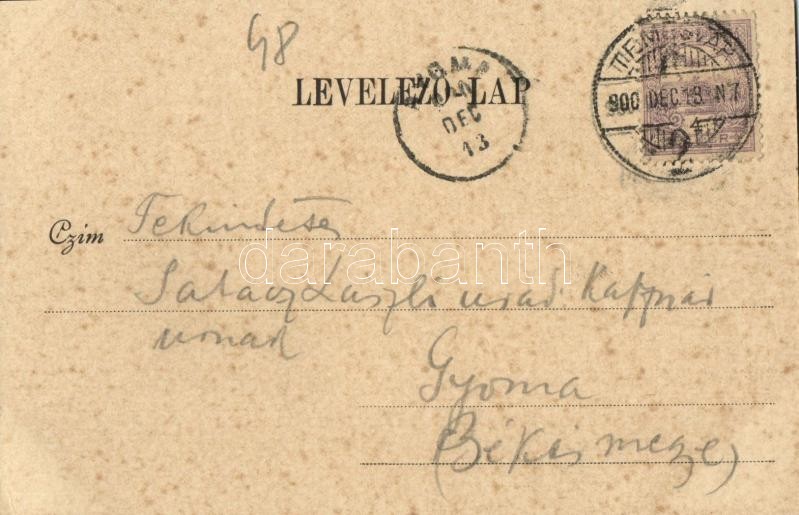 48
LEVELEZŐ-LAP
GYOMA
DEC
13
TEMESVÁR
900 DEC 13 N7
Czim Tekintetes
László urad
urnak
Gyoma
(Békésmegye)
darabanth